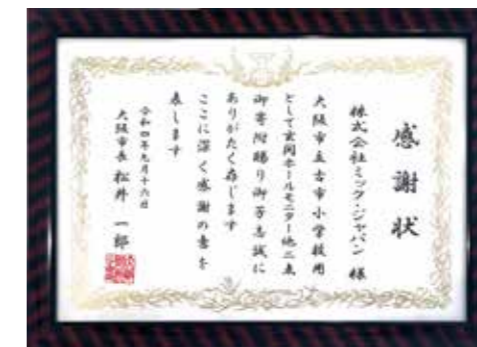 感謝状
株式会社ミック・ジャパン 様
大阪市立古市小学校用
として玄関ホールモニター他三点
御寄附賜り御芳志誠に
ありがたく存じます
ここに深く感謝の意を
表します
令和四年九月十六日
大阪市長 松井 一郎